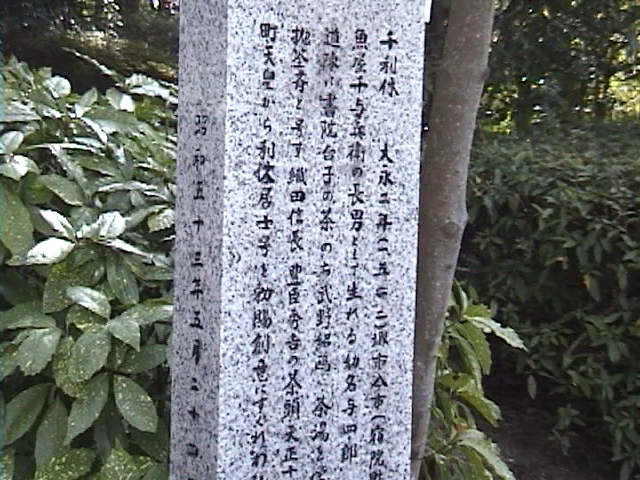 千利休 大永二年(一五二二)堺市今市(宿院町
魚屋千与兵衛の長男として生れる幼名与四郎
道陳に書院台子の茶の方武野紹鴎に茶湯を
抛筌斉と号す織田信長 豊臣秀吉の茶頭天正十
町天皇から利休居士号を勅賜創意にすぐれわび
昭和五十三年五月二十